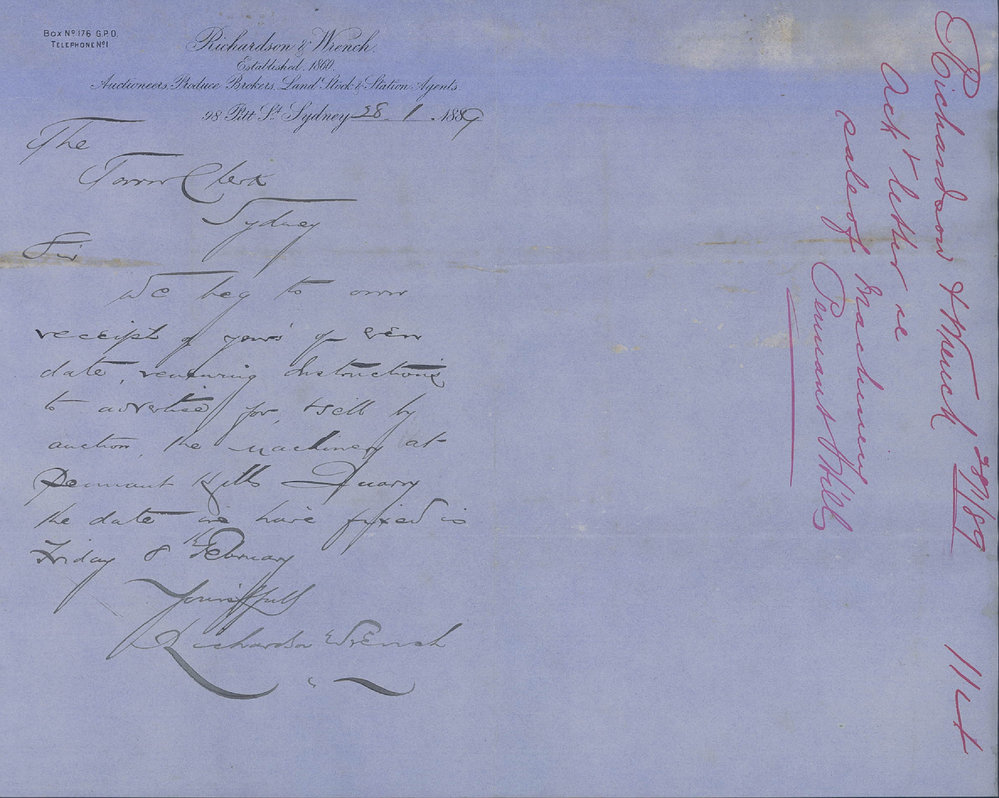 Box Nº 176 G.P.O.
Telephone Nº 1
Richardson & Wrench
Established 1860.
Auctioneers, Produce Brokers, Land Stock & Station Agents.
98 Pitt St. Sydney 28.1.1889
The
Town Clerk
Sydney
Sir
We beg to
receipt of yours of even
date, instructions
to advertise for, & sell by
auction, the Machinery at
Pennant Hills Quarry
the date we have fixed is
Friday 8th February
Yours ffully
Richardson & Wrench
Richardson & Wrench 28/1/89
Ack & letter re
sale of Machinery
Pennant Hills